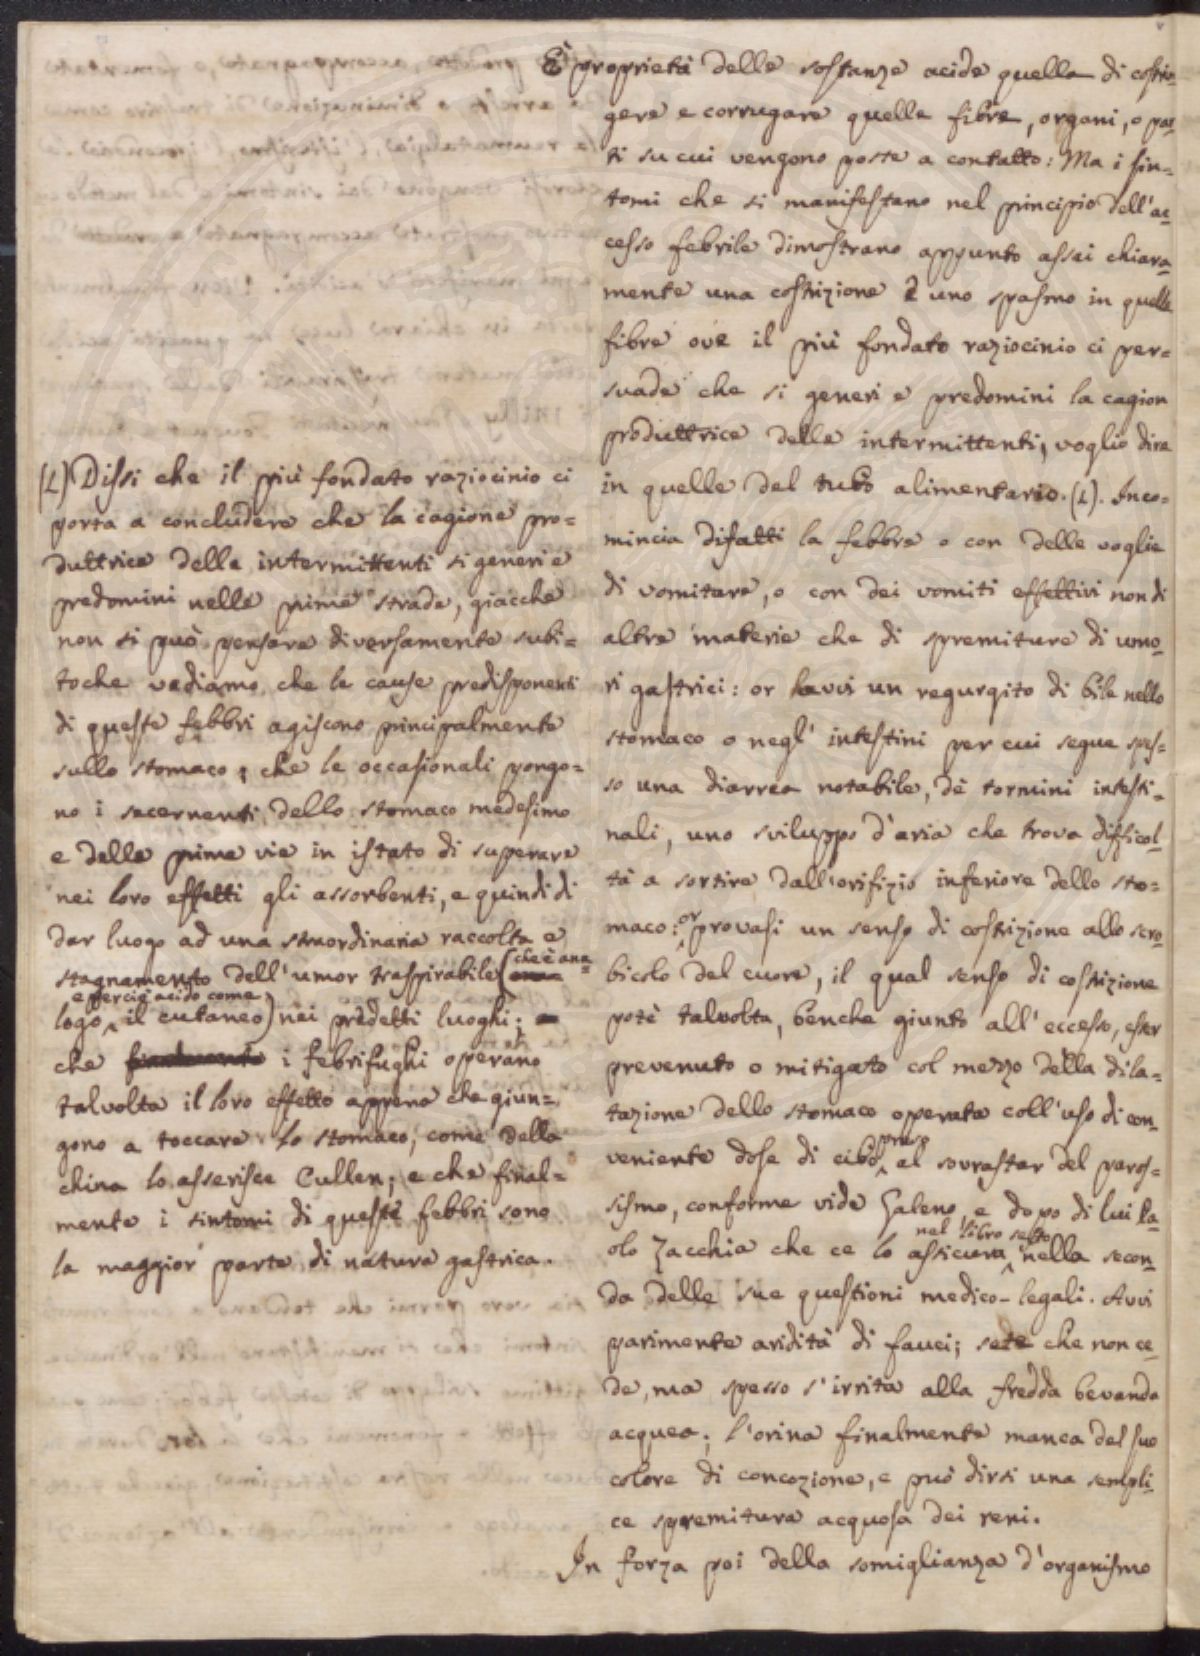 È proprietà delle sostanze acide quella di costrin-
gere e corrugare quelle fibre, organi, o par-
ti su cui vengono poste a contatto: Ma i sin-
tomi che si manifestano nel principio dell'ac-
cesso febrile dimostrano appunto assai chiara-
mente una costrizione e uno spasmo in quelle
fibre ove il più fondato raziocinio ci per-
suade che si generi e predomini la cagion
produttrice delle intermittenti, voglio dire
in quelle del tubo alimentario. (1). Inco-
mincia difatti la febbre o con delle voglie
di vomitare, o con dei vomiti effettivi non di
altre materie che di spremiture di umo-
ri gastrici: or havvi un regurgito di bile nello
stomaco o negl' intestini per cui segue spes-
so una diarrea notabile, de tormini intesti-
nali, uno sviluppo d'aria che trova difficol-
tà a sortire dall'orifizio inferiore dello sto-
maco: or provasi un senso di costrizione allo scro-
bicolo del cuore, il qual senso di costrizione
potè talvolta, benche giunto all' eccesso, esser
prevenuto o mitigato col mezzo della dila-
tazione dello stomaco operata coll'uso di con-
veniente dose di cibo preso al sovrastar del paros-
sismo, conforme vide Galeno, e dopo di lui Pa-
olo Zacchia che ce lo assicura nel libro sesto nella secon-
da delle sue questioni medico-legali. Avvi
parimente aridità di fauci; sete che non ce-
de, ma spesso s'irrita alla fredda bevanda
acquea; l'orina finalmente manca del suo
colore di concozione, e può dirsi una sempli-
ce spremitura acquosa dei reni.
In forza poi della somiglianza d'organismo
(1) Dissi che il più fondato raziocinio ci
porta a concludere che la cagione pro-
duttrice delle intermittenti si generi e
predomini nelle prime strade, giacche
non si può pensare diversamente subi-
toche vediamo che le cause predisponenti
di queste febbri agiscono principalmente
sullo stomaco; che le occasionali pongo-
no i secernenti dello stomaco medesimo
e delle prime vie in istato di superare
nei loro effetti gli assorbenti, e quindi di
dar luogo ad una straordinaria raccolta e
stagnamento dell'umor traspirabile (che è ana-
logo, e perciò acido come il cutaneo) nei predetti luoghi;
che i febrifughi operano
talvolta il loro effetto appena che giun-
gono a toccare lo stomaco, come della
china lo asserisce Cullen; e che final-
mente i sintomi di queste febbri sono
la maggior parte di natura gastrica.